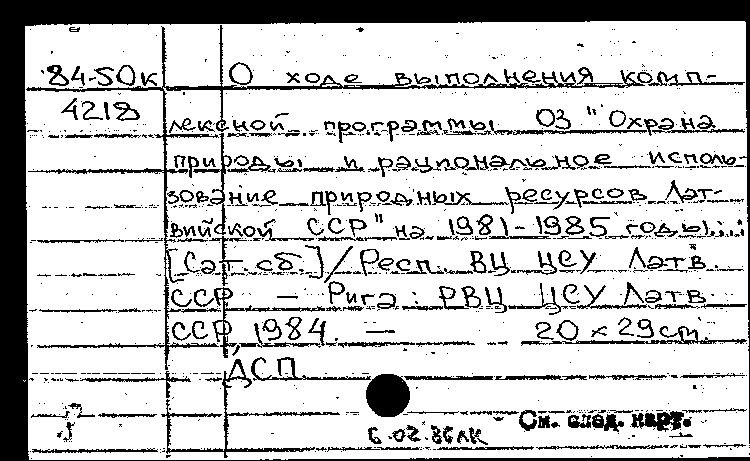 84-50к О ходе выполнения комп-
4218 лексной программы ОЗ "Охрана
природы и рациональное исполь-
зование природных ресурсов Лат-
вийской ССР" на 1981-1985 годы...:
[Стат. сб.] / Респ. ВЦ ЦСУ Латв.
ССР — Рига: РВЦ ЦСУ Латв.
ССР, 1984. — 20 × 29 cm.
ДСП
См. след. карт.
6.02.86 ЛК